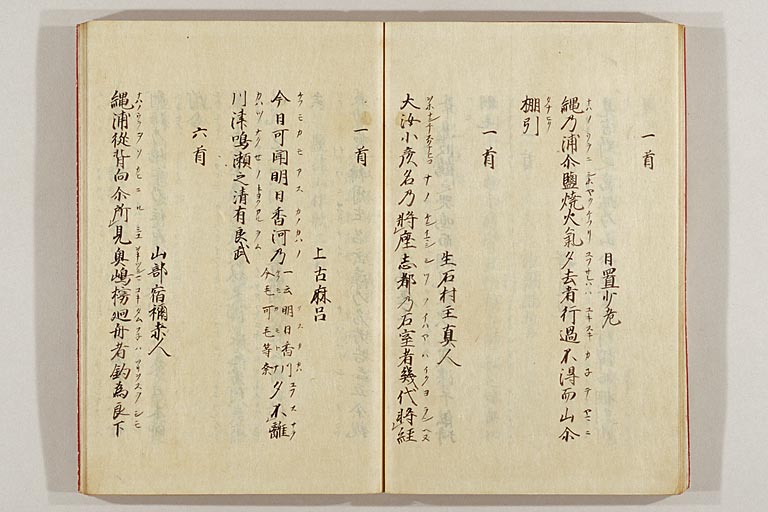 一首
日置少老
縄乃浦尒鹽焼火氣夕去者行過不得而山尒
棚引
一首
生石村主真人
大汝小彦名乃将座志都乃石室者幾代将経
一首
上古麻呂
今日可聞明日香河乃一云明日香川今毛可毛等奈夕不離
川津鳴瀬之清有良武
六首
山部宿禰赤人
縄浦従背向尒所見奥嶋榜廻舟者釣為良下